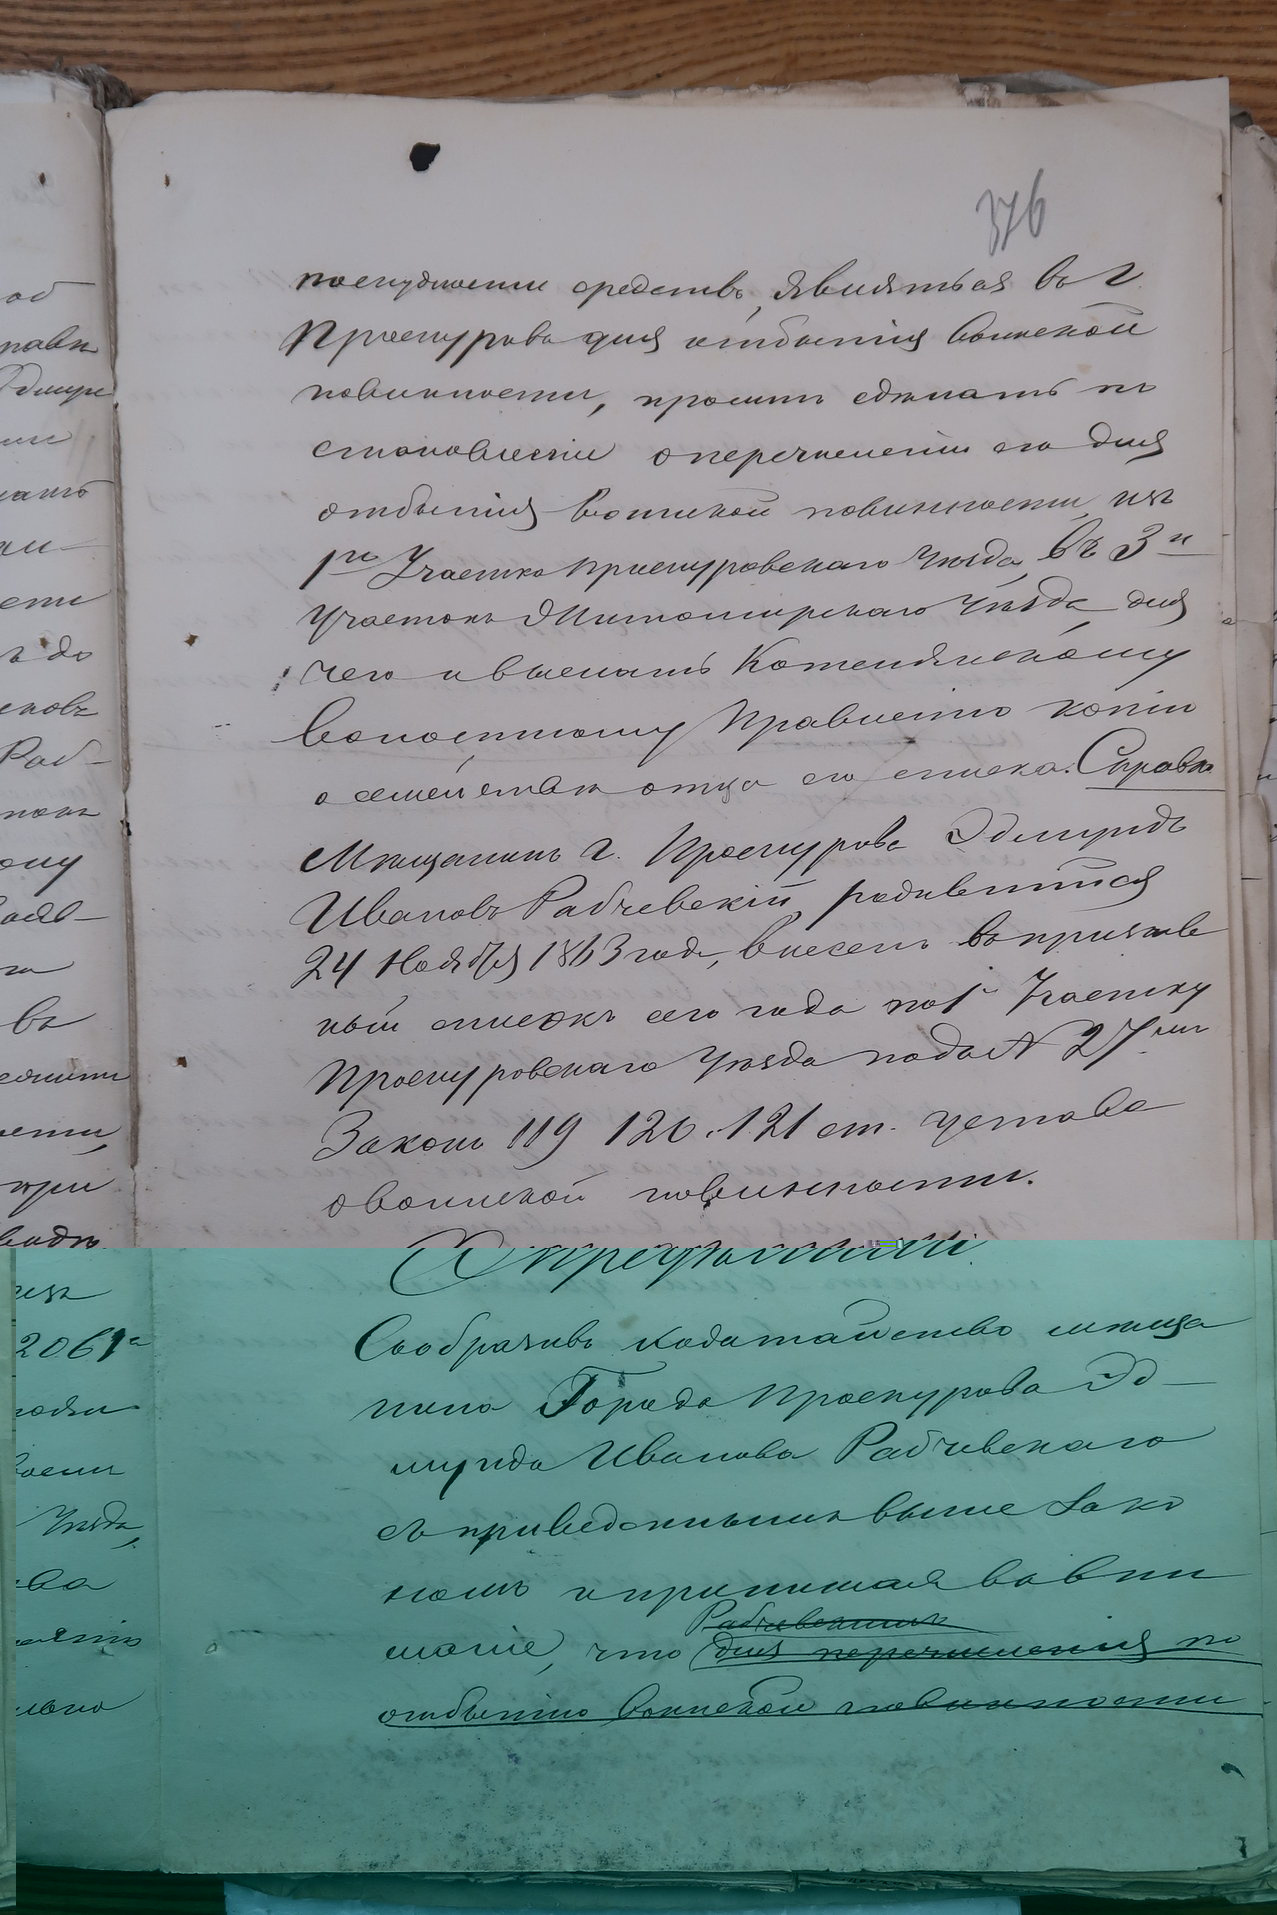 376
поскудности средствъ, явиться въ г.
Проскуровъ для отбытія воинской
повинности, проситъ сдѣлать по
становленіе о перечисленіи его для
отбытія воинской повинности изъ
1го Участка Проскуровскаго Уѣзда, въ 3й
Участокъ Житомирскаго Уѣзда, для
чего и выслать Котелянскому
Волостному Правленію копію
о семействѣ отца его списка. Справка
Мѣщанинъ г. Проскурова Эдмундъ
Ивановъ Рабчевскій, родившійся
24 Ноября 1863 года, внесенъ въ призыв
ный списокъ сего года по 1му Участку
Проскуровскаго Уѣзда подъ № 27мъ
Законъ 119 120. 121 ст. устава
о воинской повинности.
Опредѣлили:
Сообразивъ ходатайство мѣща
нина Города Проскурова Эд-
мунда Иванова Рабчевскаго
съ приведеннымъ выше зако
номъ и принимая во вни
Рабчевскимъ
маніе, что для перечисленія по
отбытію воинской повинности
об
Эдмун
ить
ать
сти
ъ до
Раб-
ому
въ
ести,
при
изъ
2061
Уѣзда,
ва